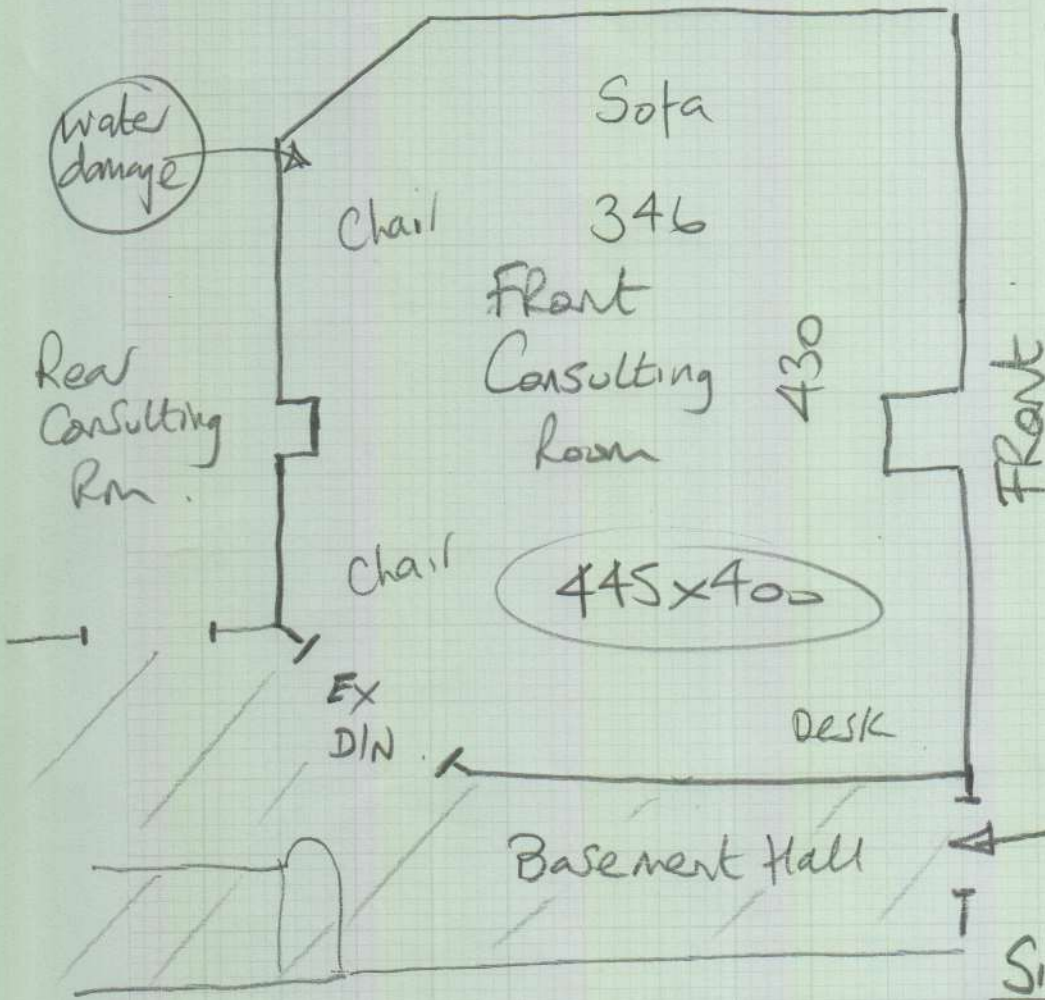 Sofa
water
damage
Chair
346
Front
Consulting
Room
430
Rear
Consulting
Rm.
FRont
Chair
445x400
EX
D/N
Desk
Basement Hall